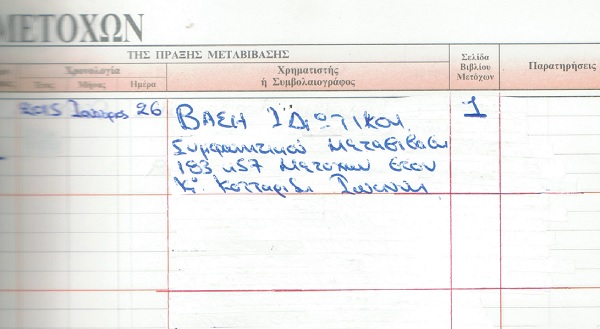 ΜΕΤΟΧΩΝ
ΤΗΣ ΠΡΑΞΗΣ ΜΕΤΑΒΙΒΑΣΗΣ
Χρονολογία
Έτος Μήνας Ημέρα
Χρηματιστής
ή Συμβολαιογράφος
Σελίδα
Βιβλίου
Μετόχων
Παρατηρήσεις
2015 26
ΒΑΣΗ ΙΔΙΩΤΙΚΟΥ
Συμφωνητικού Μεταβίβασης
Μετοχών στον
Κο Κοτταρίδη Ιωάννη
1